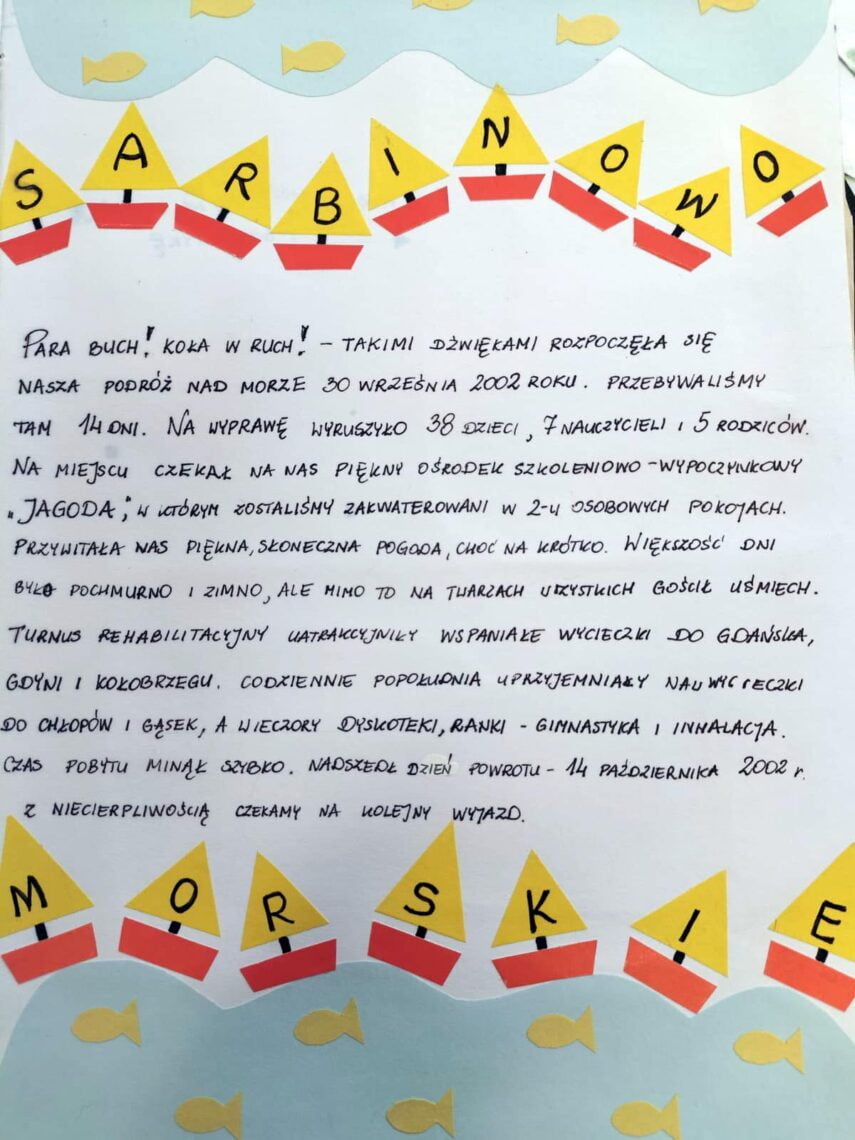 SARBINOWO
PARA BUCH! KOŁA W RUCH! - TAKIMI DŹWIĘKAMI ROZPOCZĘŁA SIĘ
NASZA PODRÓŻ NAD MORZE 30 WRZEŚNIA 2002 ROKU. PRZEBYWALIŚMY
TAM 14 DNI. NA WYPRAWĘ WYRUSZYŁO 38 DZIECI, 7 NAUCZYCIELI I 5 RODZICÓW.
NA MIEJSCU CZEKAŁ NA NAS PIĘKNY OŚRODEK SZKOLENIOWO-WYPOCZYNKOWY
„JAGODA”, W KTÓRYM ZOSTALIŚMY ZAKWATEROWANI W 2-U OSOBOWYCH POKOJACH.
PRZYWITAŁA NAS PIĘKNA, SŁONECZNA POGODA, CHOĆ NA KRÓTKO. WIĘKSZOŚĆ DNI
BYŁO POCHMURNO I ZIMNO, ALE MIMO TO NA TWARZACH WSZYSTKICH GOŚCIŁ UŚMIECH.
TURNUS REHABILITACYJNY UATRAKCYJNIŁY WSPANIAŁE WYCIECZKI DO GDAŃSKA,
GDYNI I KOŁOBRZEGU. CODZIENNIE POPOŁUDNIA UPRZYJEMNIAŁY NAM WYCIECZKI
DO CHŁOPÓW I GĄSEK, A WIECZORY DYSKOTEKI, RANKI - GIMNASTYKA I INHALACJA.
CZAS POBYTU MINĄŁ SZYBKO. NADSZEDŁ DZIEŃ POWROTU - 14 PAŹDZIERNIKA 2002 r.
Z NIECIERPLIWOŚCIĄ CZEKAMY NA KOLEJNY WYJAZD.
MORSKIE